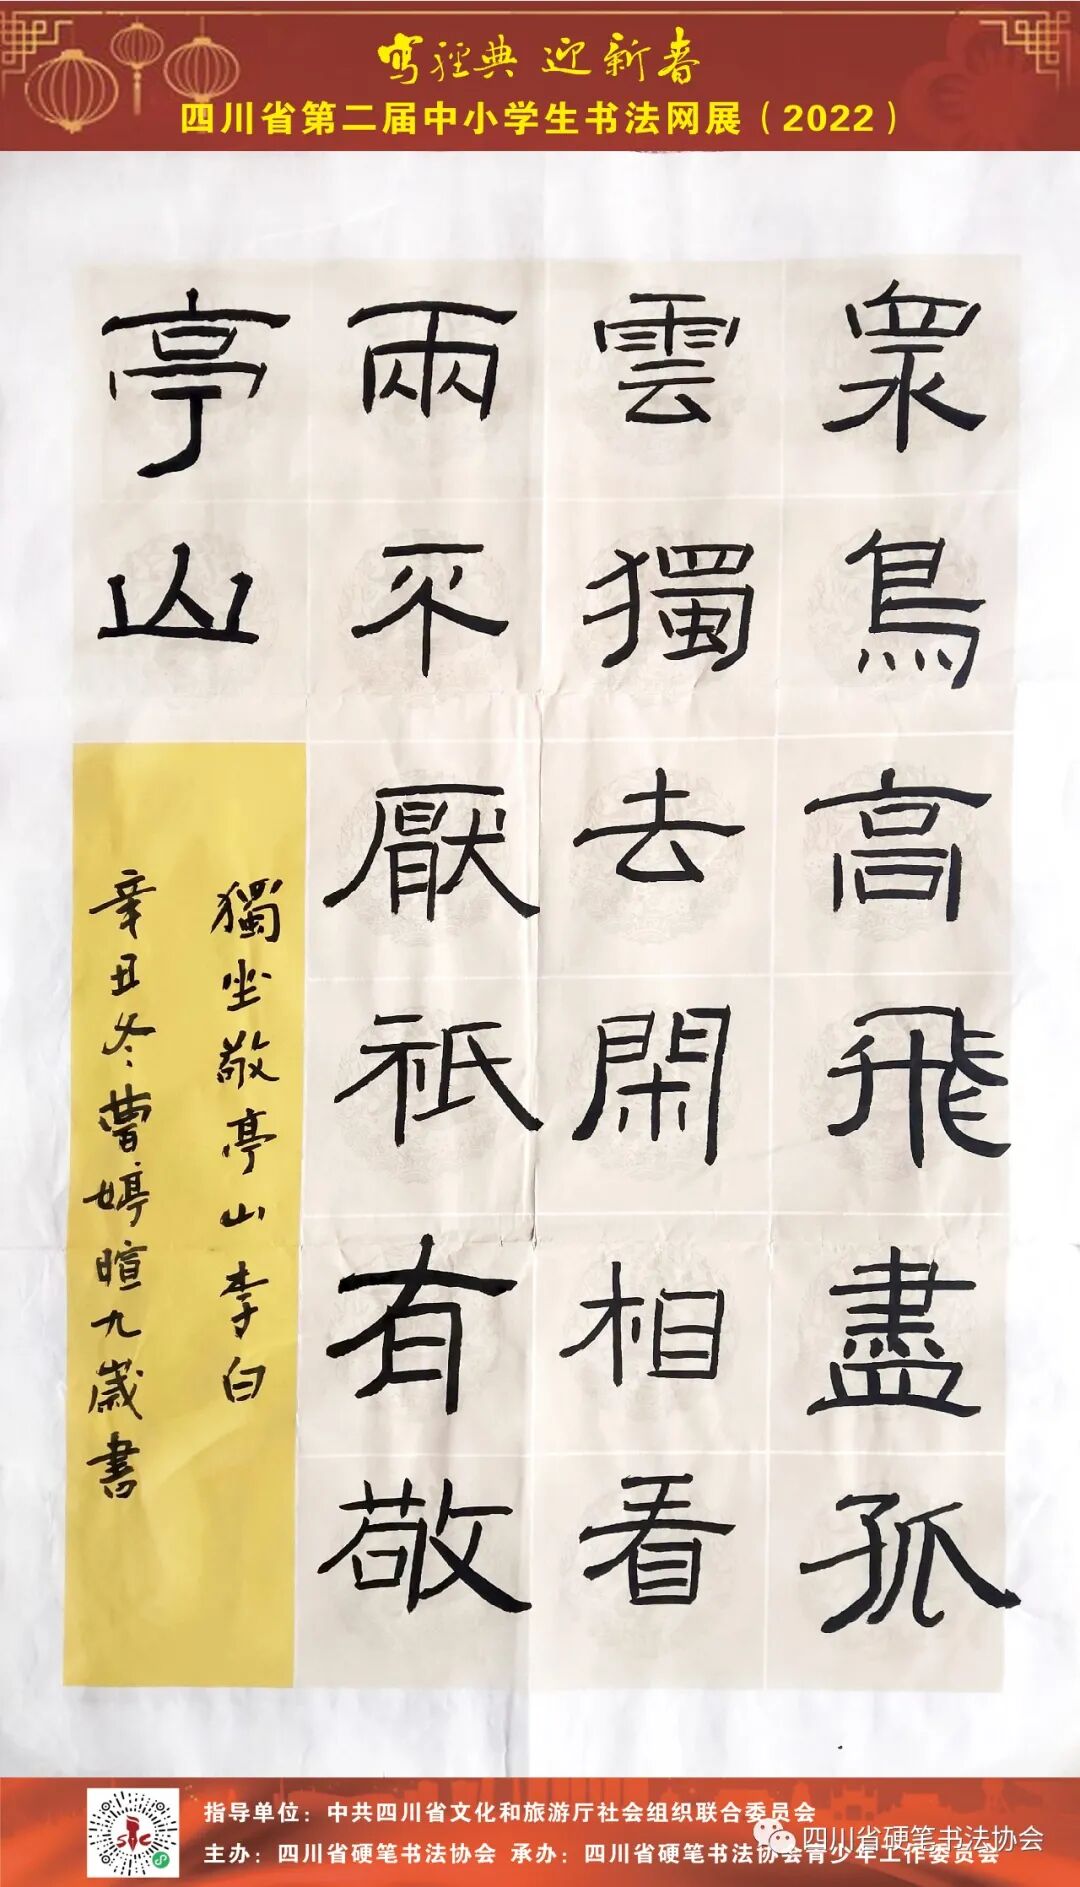 写经典 迎新春
四川省第二届中小学生书法网展（2022）
眾鳥高飛盡孤
雲獨去閑相看
兩不厭祇有敬
亭山
獨坐敬亭山李白
辛丑冬曹婷暄九歲書
指导单位：中共四川省文化和旅游厅社会组织联合委员会
主办：四川省硬笔书法协会 承办：四川省硬笔书法协会青少年工作委员会
四川省硬笔书法协会